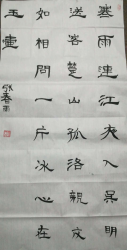 寒雨連江夜入吴明
送客楚山孤洛親友
如相問一片冰心在
玉壺
春雨